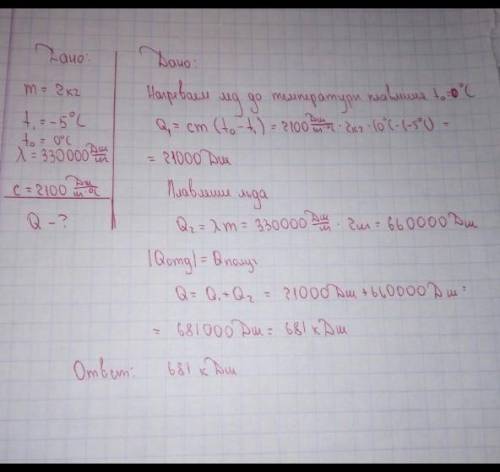 Дано:
m = 2кг
t₁ = -5°C
t₀ = 0°C
λ = 330000 Дш/ш
c = 2100 Дш/ш °C
Q - ?
Дано:
Нагреваем лёд до температури плавления t₀ = 0°C
Q₁ = cm (t₀ - t₁) = 2100 Дш/ш °C · 2кг · (0°C - (-5°C)) =
= 21000 Дш
Плавление льда
Q₂ = λm = 330000 Дш/ш · 2ш = 660000 Дш
|Qотд| = Qполуч
Q = Q₁ + Q₂ = 21000 Дш + 660000 Дш =
= 681000 Дш = 681 кДш
Ответ: 681 кДш